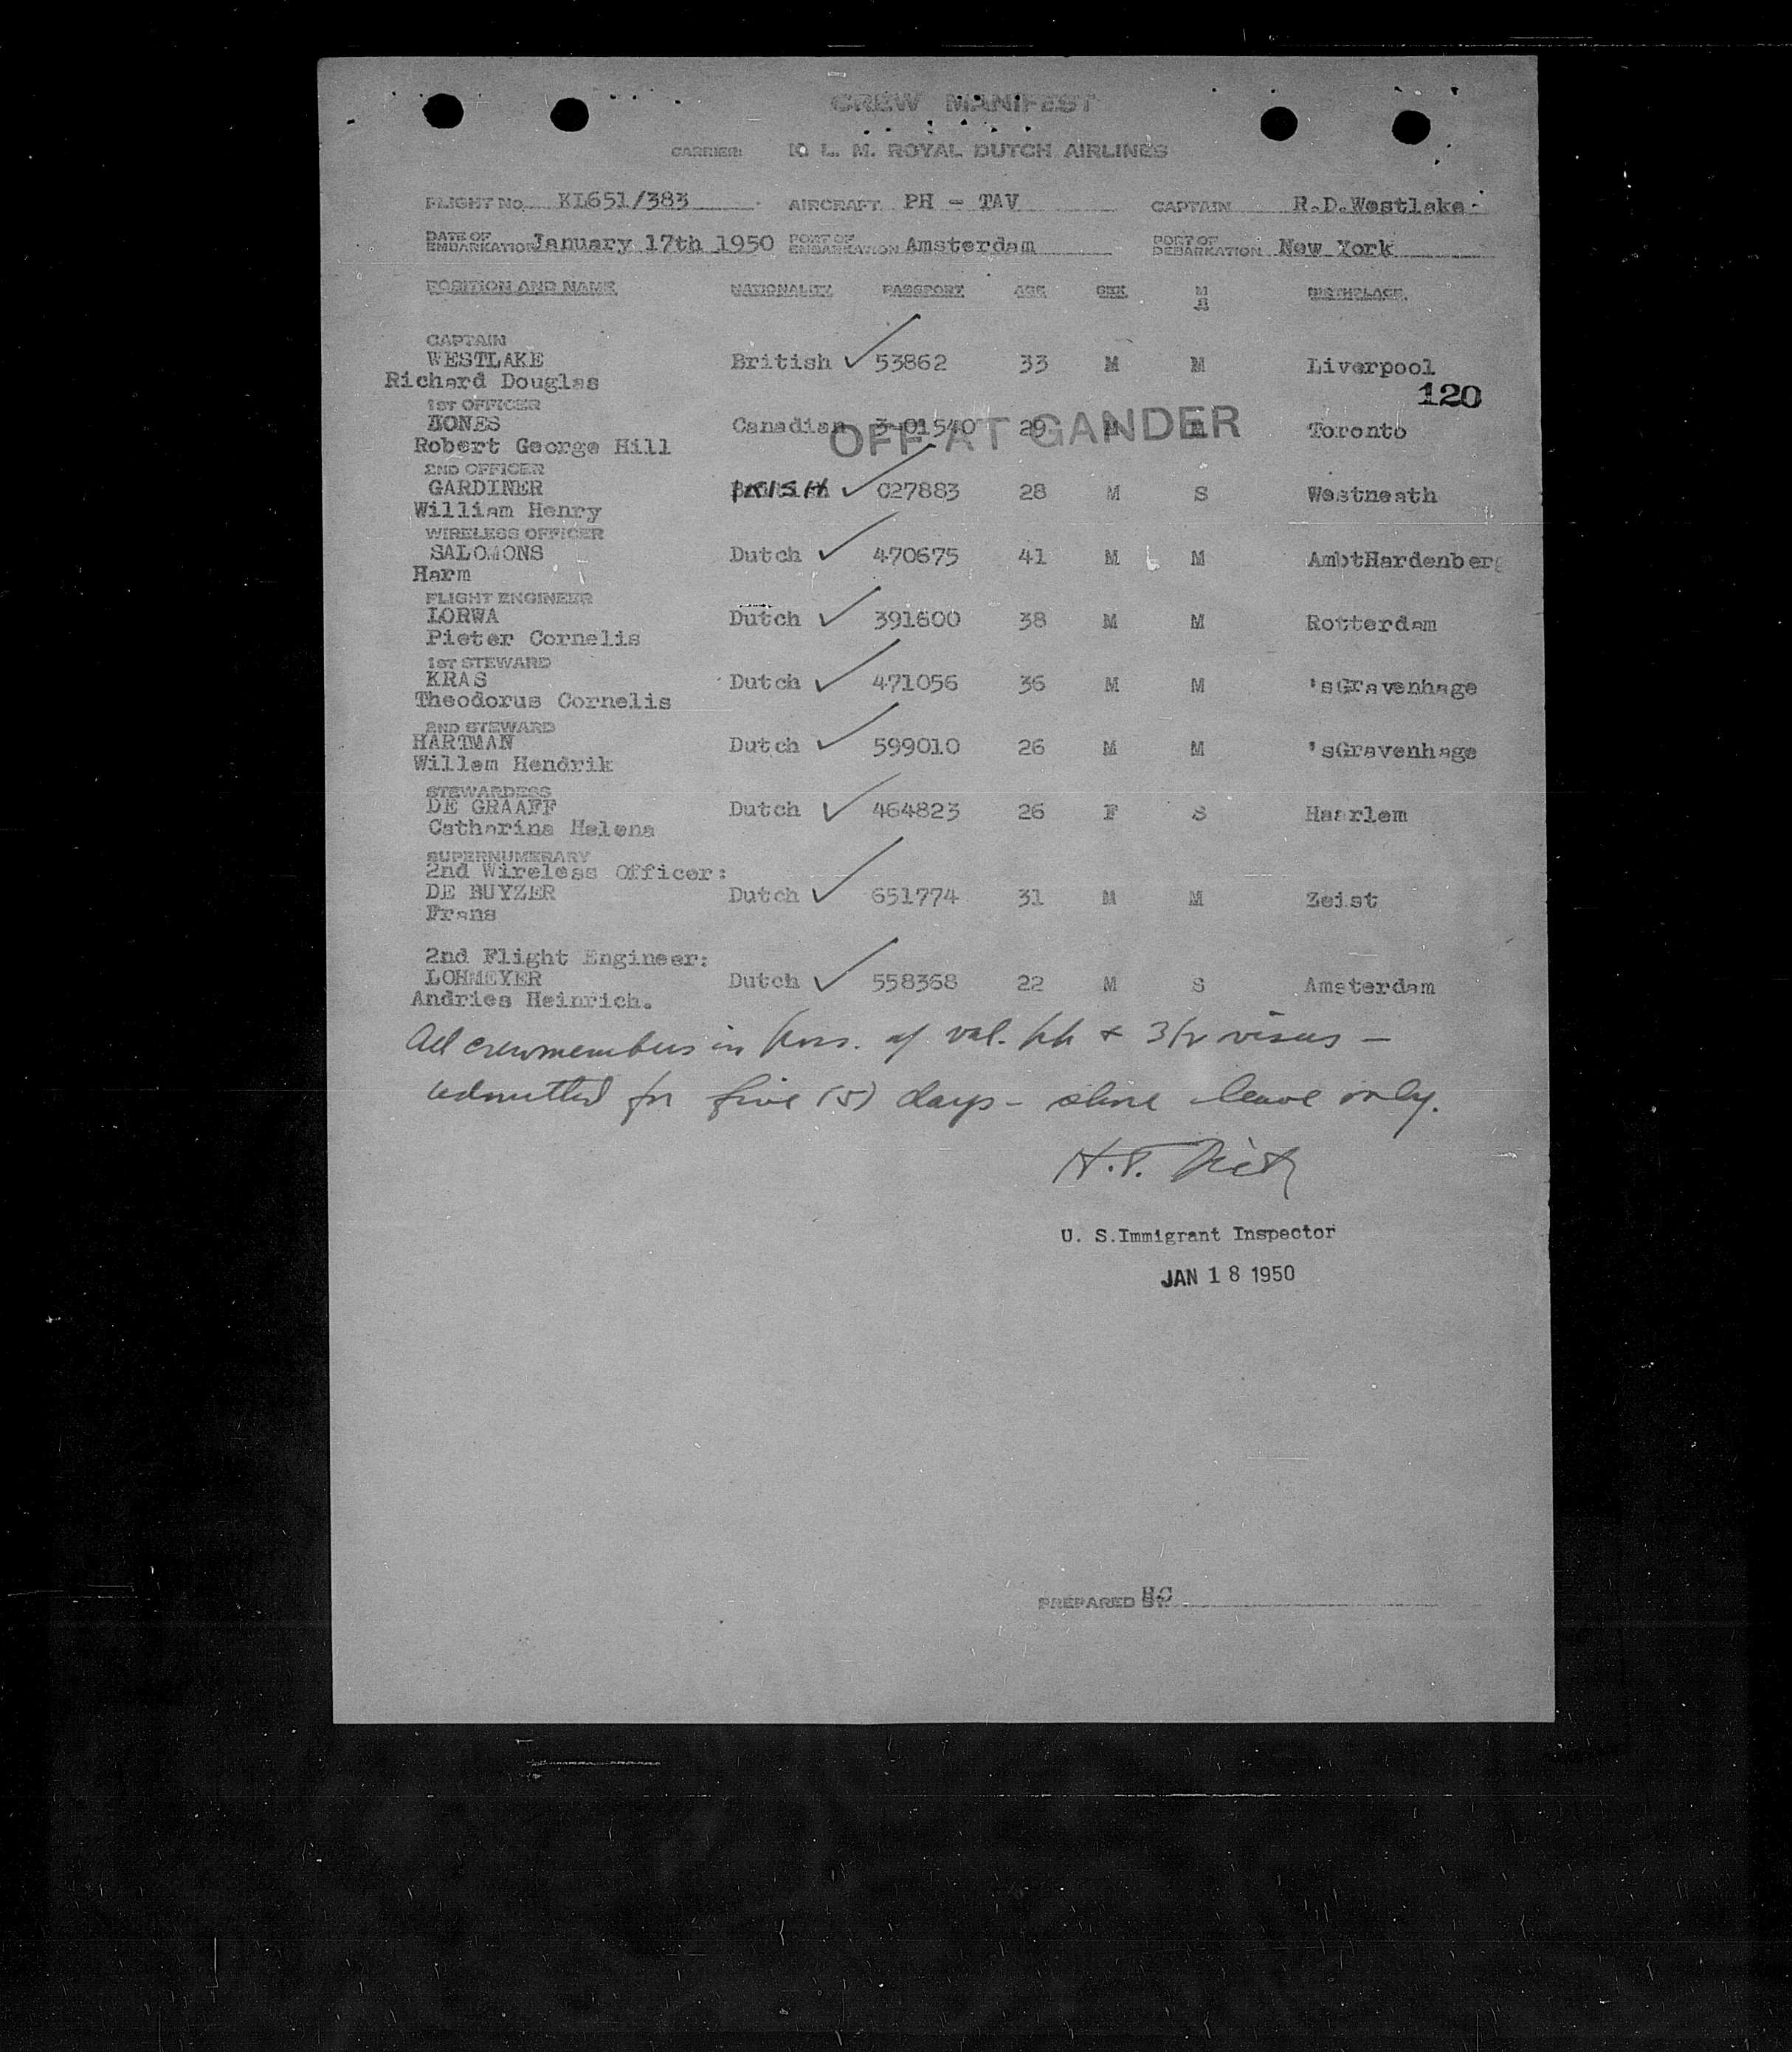 CREW MANIFEST
CARRIER: K. L. M. ROYAL DUTCH AIRLINES
FLIGHT No. KL651/383 AIRCRAFT PH - TAV CAPTAIN R.D.Westlake
DATE OF EMBARKATION January 17th 1950 PORT OF EMBARKATION Amsterdam PORT OF DEBARKATION New York
POSITION AND NAME NATIONALITY PASSPORT AGE SEX M S BIRTHPLACE
CAPTAIN
WESTLAKE British 53862 33 M M Liverpool
Richard Douglas
120
1ST OFFICER
Canadian 3-01540 29 M Toronto
OFF AT GANDER
Robert George Hill
2ND OFFICER
GARDINER IRISH 027883 28 M S Westneath
William Henry
WIRELESS OFFICER
SALOMONS Dutch 470675 41 M M AmbtHardenberg
Harm
FLIGHT ENGINEER
LORWA Dutch 391800 38 M M Rotterdam
Pieter Cornelis
1ST STEWARD
KRAS Dutch 471056 36 M M 'sGravenhage
Theodorus Cornelis
2ND STEWARD
HARTMAN Dutch 599010 26 M M 'sGravenhage
Willem Hendrik
STEWARDESS
DE GRAAFF Dutch 464823 26 F S Haarlem
Catharina Helena
SUPERNUMERARY
2nd Wireless Officer:
DE BUYZER Dutch 651774 31 M M Zeist
Frans
2nd Flight Engineer:
LOHMEYER Dutch 558368 22 M S Amsterdam
Andries Heinrich.
All crewmembers in poss. of val. pp + 3/2 visas -
admitted for five (5) days - shore leave only.
U. S.Immigrant Inspector
JAN 18 1950
PREPARED BY HC